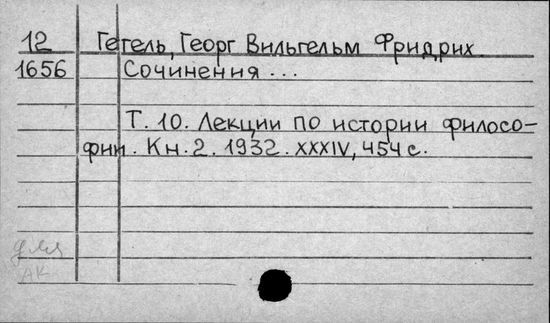 12 Гегель, Георг Вильгельм Фридрих
1656 Сочинения ...
Т. 10. Лекции по истории филосо-
фии. Кн. 2. 1932. XXXIV, 454 с.
АК